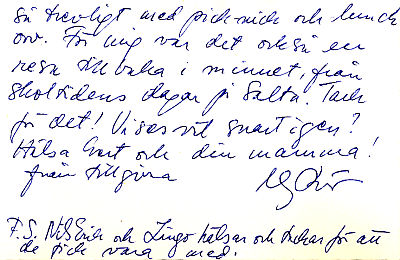 så trevligt med picknick och lunch
osv. För mig var det också en
resa tillbaka i minnet, från
skoltidens dagar på Salta. Tack
för det! Vi ses väl snart igen?
Hälsa och din mamma!
från tillgivna
P.S. Nils Erik och hälsar och tackar för att
de fick vara med.